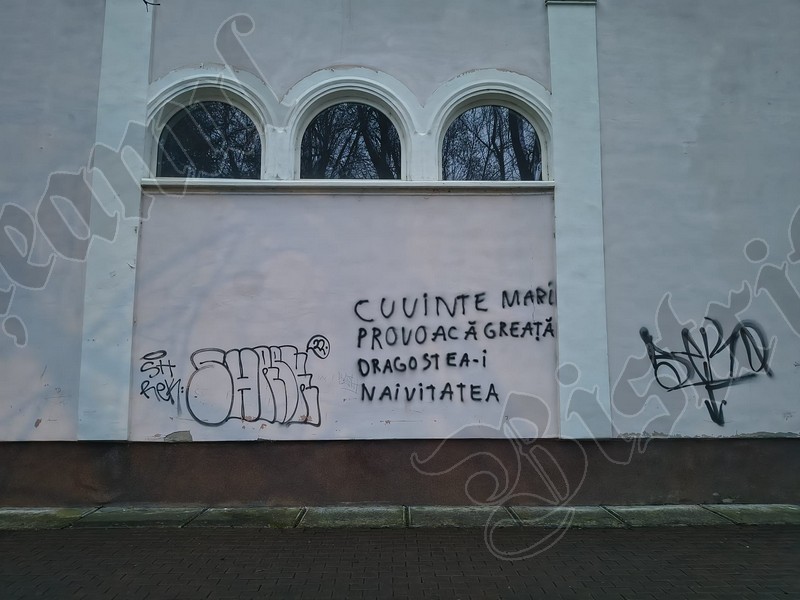 CUVINTE MARI
PROVOACĂ GREAȚĂ
DRAGOSTEA-I
NAIVITATEA
SH
REK.